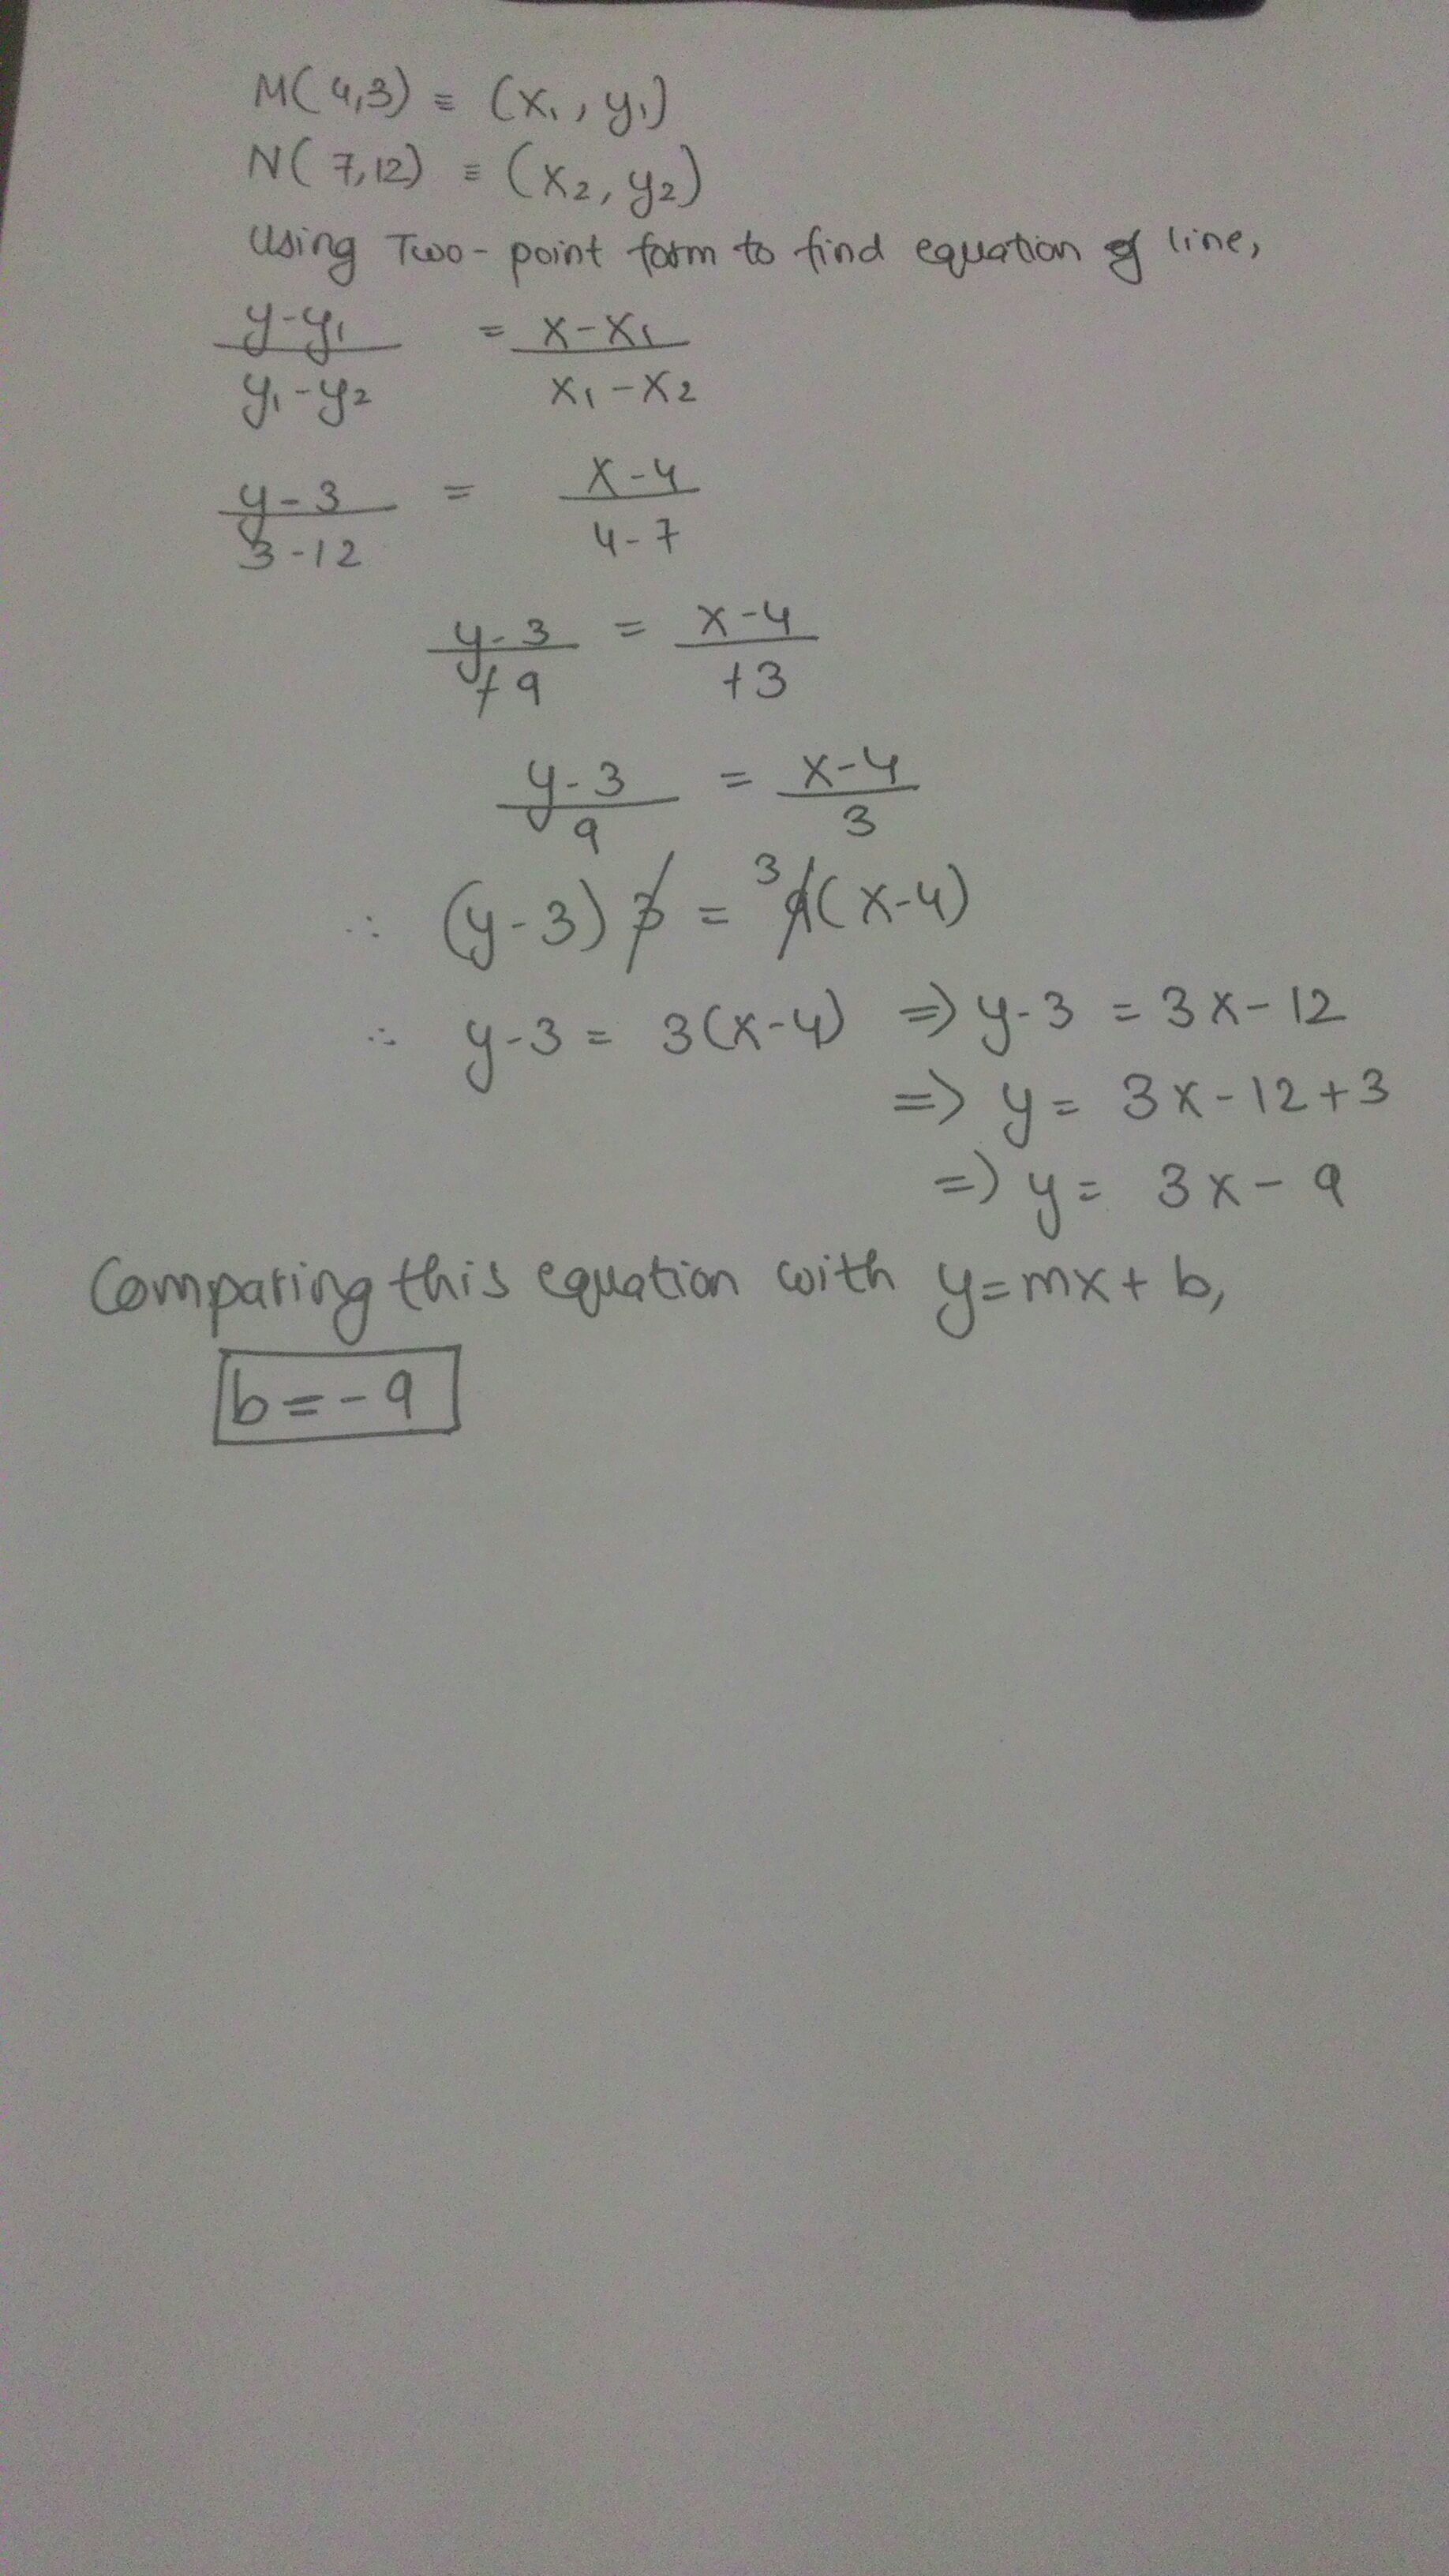 M(4,3) ≡ (x₁, y₁)
N(7,12) ≡ (x₂, y₂)
Using Two-point form to find equation of line,
y-y₁/y₁-y₂ = x-x₁/x₁-x₂
y-3/3-12 = x-4/4-7
y-3/+9 = x-4/+3
y-3/9 = x-4/3
∴ (y-3) 3 = ³9(x-4)
∴ y-3 = 3(x-4) ⇒ y-3 = 3x-12
⇒ y = 3x-12+3
⇒ y = 3x-9
Comparing this equation with y=mx+b,
b=-9